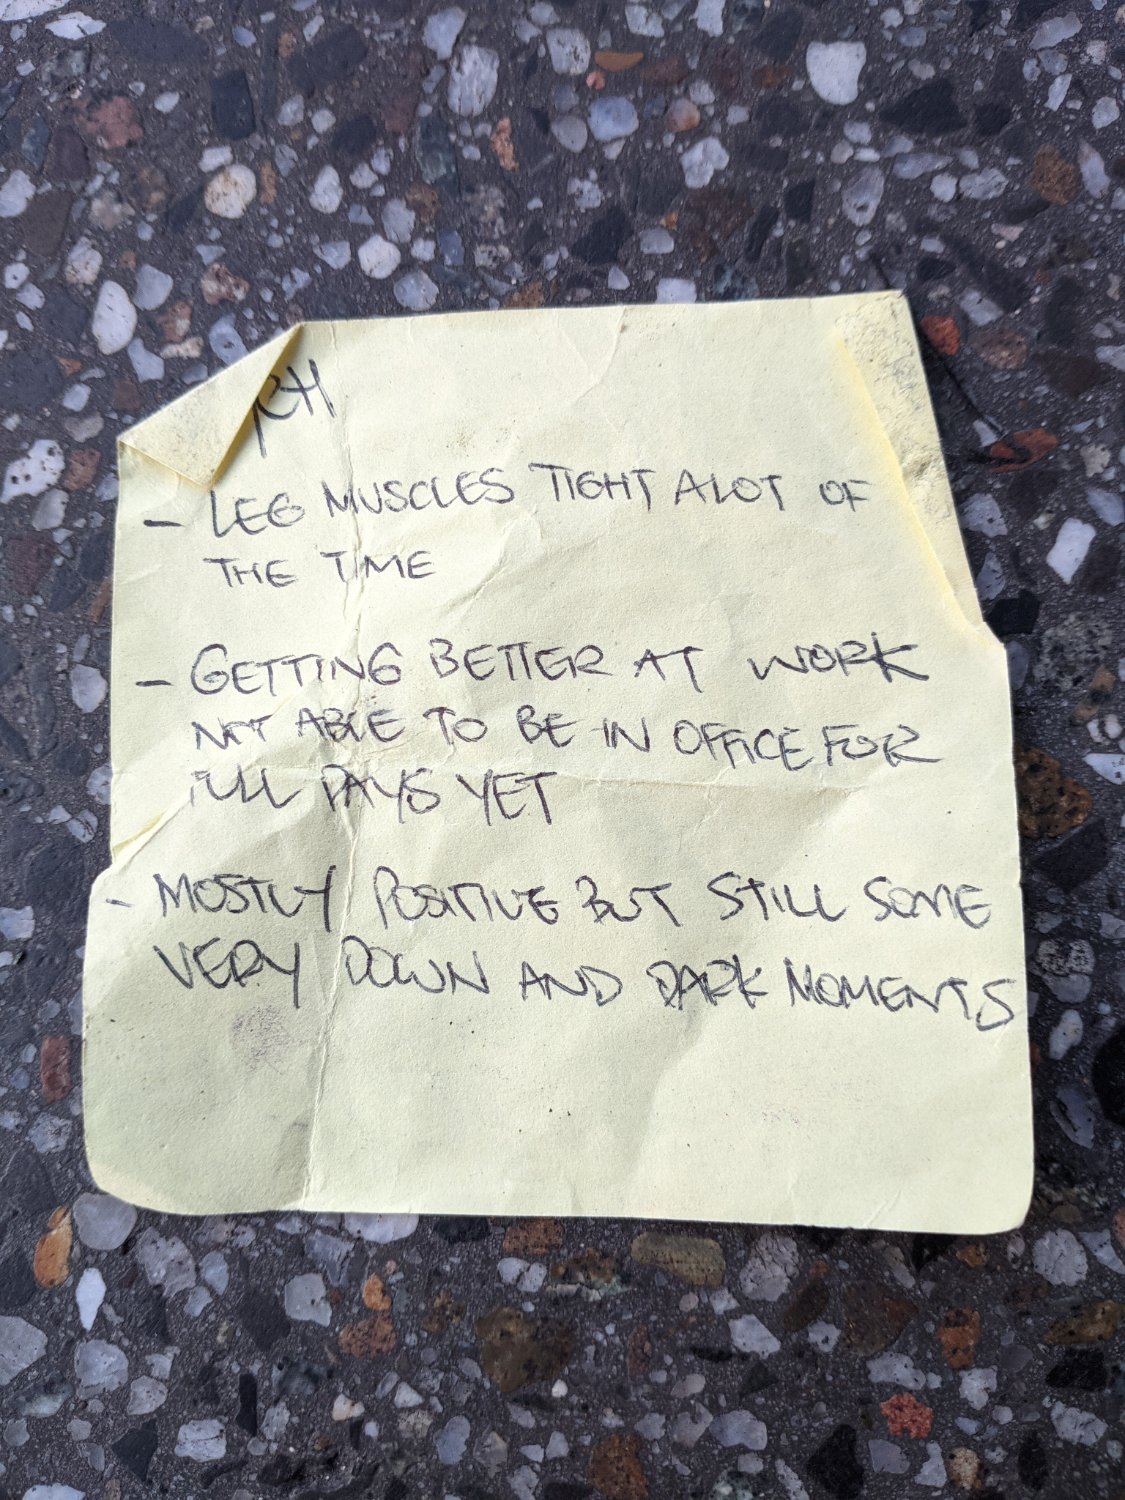 RH
- LEG MUSCLES TIGHT ALOT OF
THE TIME
- GETTING BETTER AT WORK
NOT ABLE TO BE IN OFFICE FOR
FULL DAYS YET
- MOSTLY POSITIVE BUT STILL SOME
VERY DOWN AND DARK MOMENTS